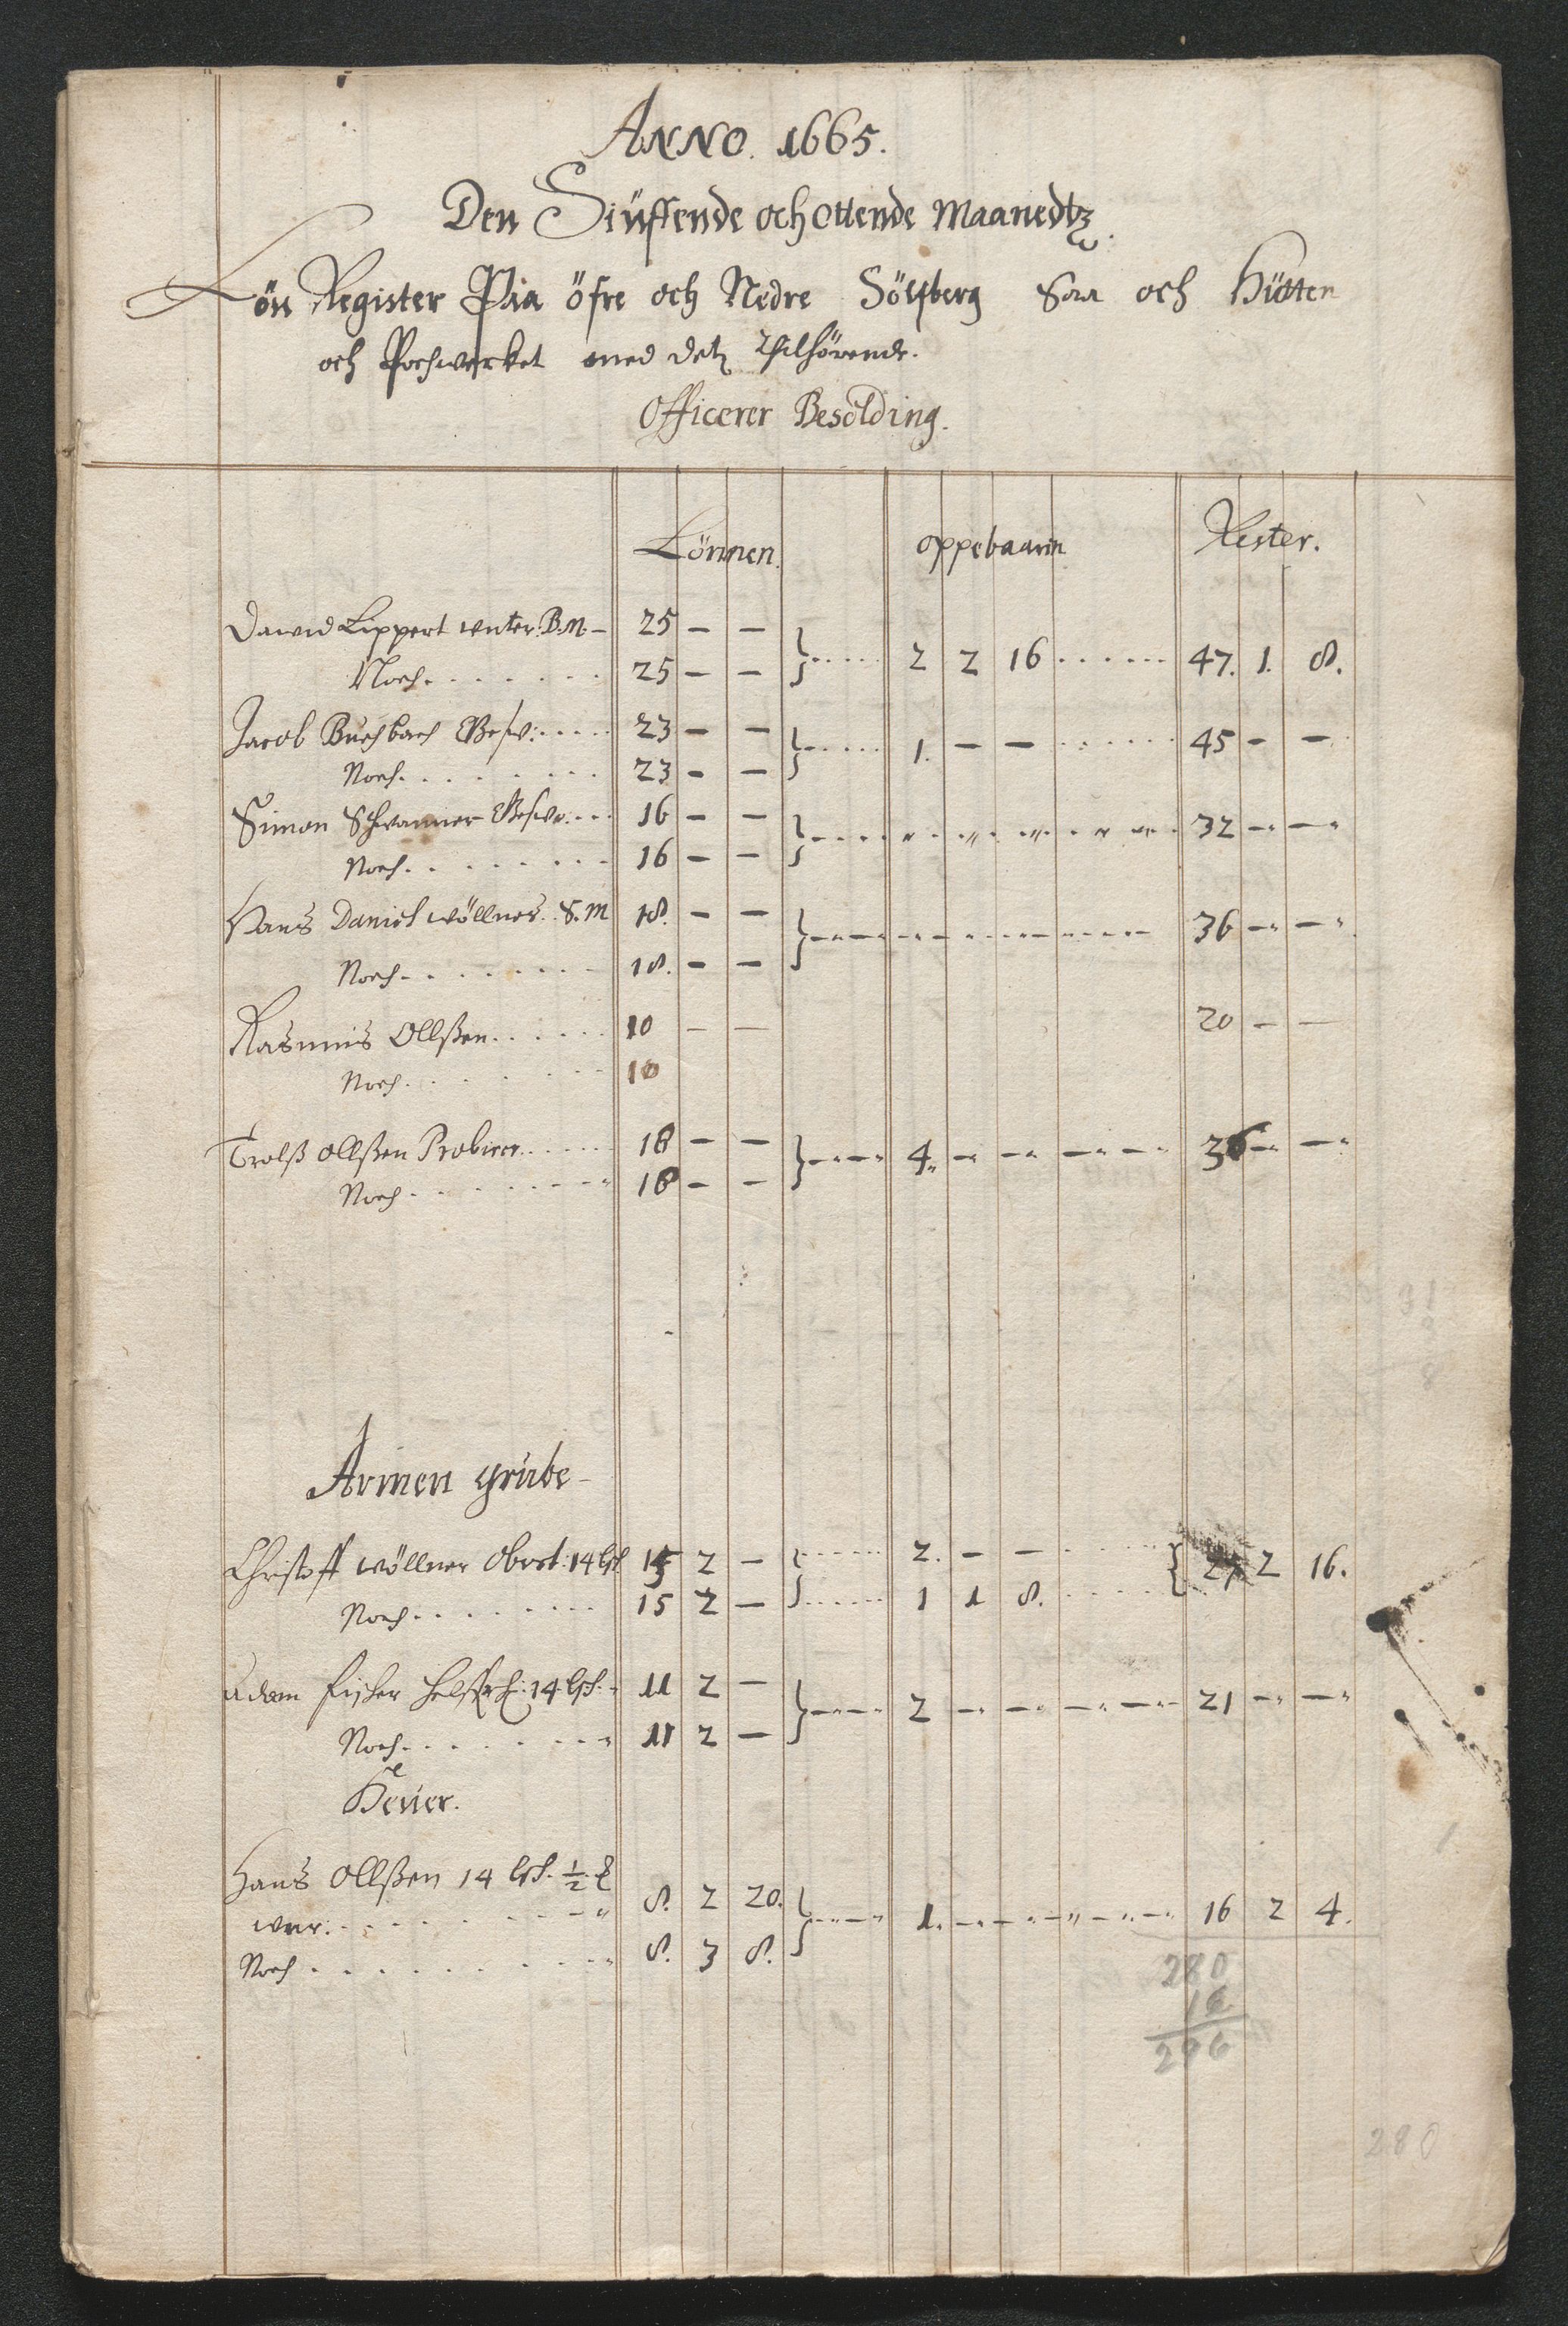 ANNO. 1665.
Den Siuffende och ottende Maanedtz
Lön Register Paa öfre och Nedre Sölfberg Saa och Hütten
och Pochwerket med detz Tilhörende.
Officerer Besolding.
Lönnen. oppebaaren Rester.
Dawid Lippert unter. B.M. - 25 - - 2 2 16 47. 1. 8.
Noch. 25 - -
Jacob Buchbach Geschw: 23 - - 1. - - 45 - -
Noch. 23 - -
Simon Schwanner Geschw. 16 - - 32 - -
Noch. 16 - -
Hans Daniel wöllner. S.M 18. - - 36 - -
Noch. 18. - -
Rasmus Ollßen. 10 - - 20 - -
Noch. 10
Trolß Ollßen Probirer. 18 - - 4. - - 36 - -
Noch. 18 - -
Armen grube -
Christoff wöllner Obrst. 14 15 2 - 2. - - 27 2 16.
Noch. 15 2 - 1 1 8.
Adam fischer 14 11 2 - 2 - - 21 - -
Noch. 11 2 -
Heuer.
Hans Ollßen 14 1/2 8. 2 20. 1. - - 16 2 4.
Noch 8. 3 8.
280
16
296
280